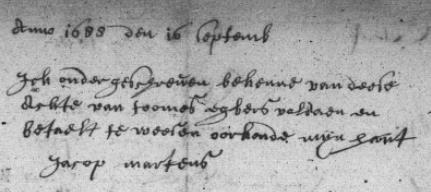 Anno 1688 den 16 septemb
Ick ondergeschreven bekenne van deese
Ackte van toomes Egbers voldaen en
betaelt te weesen oorkonde mijn hant
Jacop martens